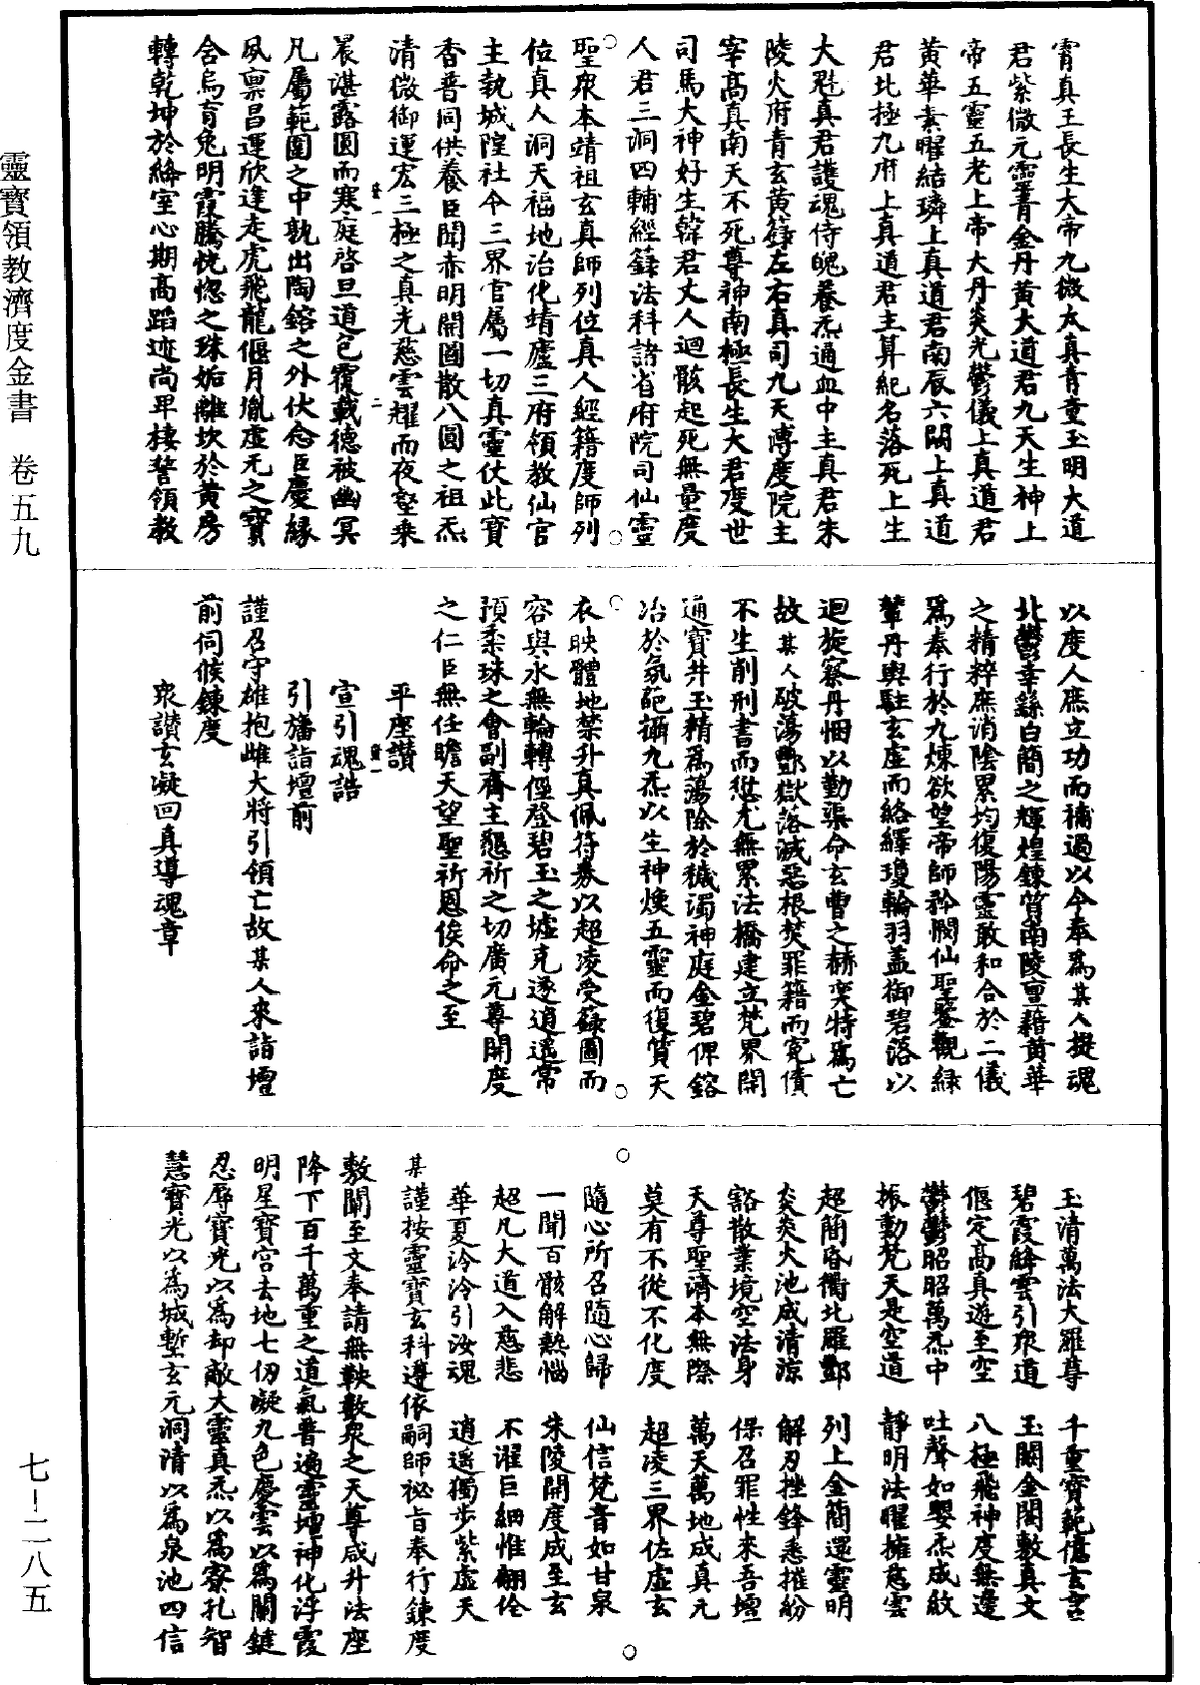 霄真王長生大帝九微太真青童玉明大道
君紫微元靈菁金丹黃大道君九天生神上
帝五靈五老上帝大丹炎光鬱儀上真道君
黃華素曜結璘上真道君南辰六闕上真道
君北極九府上真道君主算紀名落死上生
大魁真君護魂侍魄養炁通血中主真君朱
陵火府青玄黃籙左右真司九天溥度院主
宰高真南天不死尊神南極長生大君度世
司馬大神好生韓君丈人迴骸起死無量度
人君三洞四輔經籙法科諸省府院司仙靈
聖衆本靖祖玄真師列位真人經籍度師列
位真人洞天福地治化靖廬三府領教仙官
主執城隍社令三界官屬一切真靈仗此寶
香普同供養臣聞赤明開圖散八圓之祖炁
清微御運宏三極之真光慈雲耀而夜壑乘
晨湛露圓而寒庭啓旦道包覆載德被幽冥
凡屬範圍之中孰出陶鎔之外伏念臣慶緣
夙禀昌運欣逢走虎飛龍偃月胤虛无之寶
舍烏育兔明霞騰恍惚之珠姤離坎於黃房
轉乾坤於絳室心期高蹈迹尚卑棲誓領教
以度人庶立功而補過以今奉爲某人提魂
北鬱幸繇白簡之輝煌鍊質南陵亶藉黃華
之精粹庶消陰累均復陽靈敢和合於二儀
爲奉行於九煉欲望帝師矜閔仙聖鑒觀緑
輦丹輿駐玄虛而絡繹瓊輪羽蓋御碧落以
迴旋察丹悃以勤渠命玄曹之赫奕特爲亡
故某人破蕩酆獄落滅惡根焚罪籍而冤債
不生削刑書而愆尤無累法橋建立梵界開
通寶井玉精爲蕩除於穢濁神庭金碧俾鎔
冶於氛葩攝九炁以生神煥五靈而復質天
衣映體地禁升真佩符券以超凌受籙圖而
容與永無輪轉徑登碧玉之墟克遂逍遥常
預黍珠之會副齋主懇祈之切廣元尊開度
之仁臣無任瞻天望聖祈恩俟命之至
平座讃
宣引魂誥
引旛詣壇前
謹召守雄抱雌大將引領亡故某人來詣壇
前伺候鍊度
衆讃玄凝回真導魂章
玉清萬法大羅尊　千重寶範億玄言
碧霞絳雲引衆道　玉闕金閣敷真文
偃定高真遊至空　八極飛神度無邊
鬱鬱昭昭萬炁中　吐聲如嬰炁成紋
振動梵天是空道　靜明法曜擁慈雲
超簡昏衢北羅酆　列上金簡還靈明
炎炎火池咸清涼　解刃挫鋒悉摧紛
豁散業境空法身　保召罪性來吾壇
天尊聖濟本無際　萬天萬地成真元
莫有不從不化度　超凌三界佐虛玄
隨心所召隨心歸　仙信梵音如甘泉
一聞百骸解熱惱　朱陵開度成至玄
超凡大道入慈悲　不濯巨細惟翩佺
華夏泠泠引汝魂　逍遥獨步紫虛天
某謹按靈寶玄科遵依嗣師祕旨奉行鍊度
敷闡至文奉請無鞅數衆之天尊咸升法座
降下百千萬重之道氣普遍靈壇神化浮霞
明星寶宫去地七仞凝九色慶雲以爲關鍵
忍辱寶光以爲却敵大靈真炁以爲寮孔智
慧寶光以爲城塹玄元洞清以爲泉池四信
靈寶領教濟度金書　卷五九
七－二八五